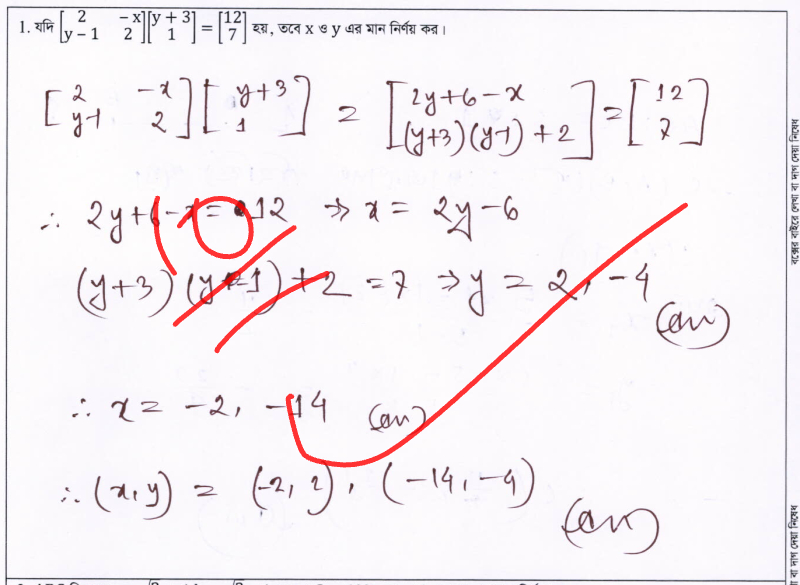 1. যদি [2 −x y − 1 2][y + 3 1] = [12 7] হয়, তবে x ও y এর মান নির্ণয় কর।
[2 -x y-1 2][y+3 1] = [2y+6-x (y+3)(y-1)+2] = [12 7]
∴ 2y+6-x = 12 ⇒ x = 2y-6
(y+3)(y-1)+2 = 7 ⇒ y = 2, -4
(an)
∴ x = -2, -14 (an)
∴ (x,y) = (-2, 2), (-14, -4)
(an)
বক্সের বাইরে লেখা বা দাগ দেয়া নিষেধ
বা দাগ দেয়া নিষেধ